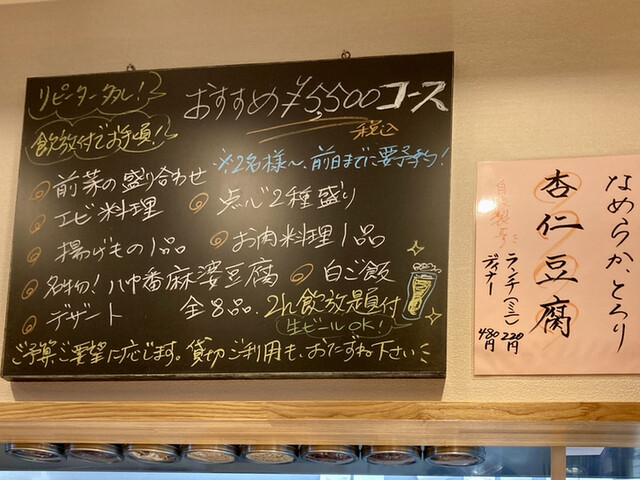 リピーター多し!
おすすめ ¥5,500 コース
税込
飲放付でお手頃!
※2名様〜、前日までに要予約!
前菜の盛り合わせ
点心2種盛り
エビ料理
お肉料理1品
揚げもの1品
名物!八中番麻婆豆腐
白ご飯
デザート
全8品、2h飲放題付
生ビールOK!
ご予算ご要望に応じます。貸切ご利用も、おたずね下さい
なめらか、とろり
杏仁豆腐
自家製
ランチ(ミニ) 220円
ディナー 480円